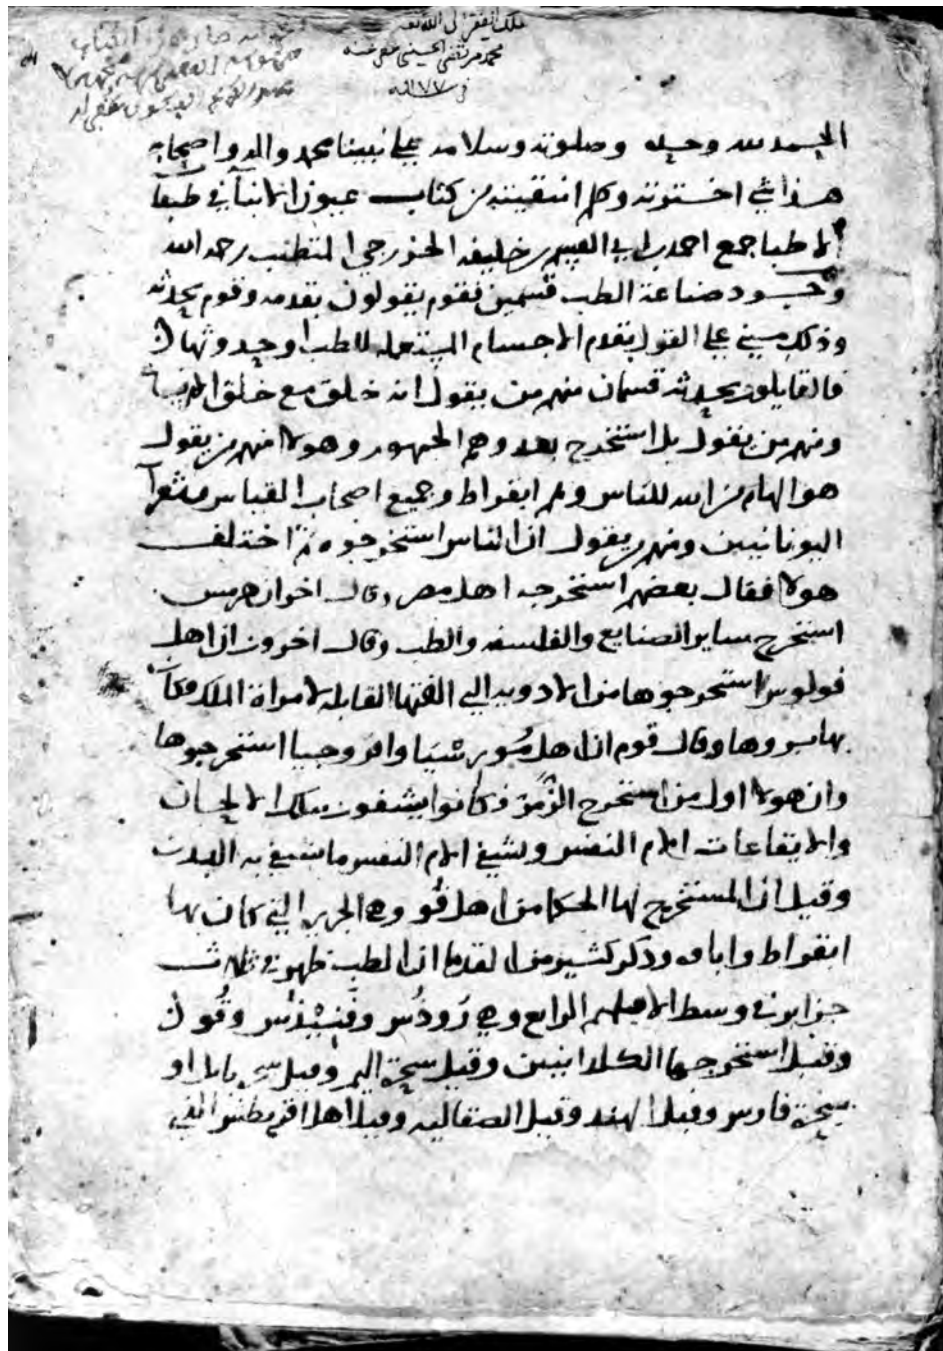 ملك الفقير الى الله تعالى
محمد مرتضى الحسيني عفي عنه
في سنة ١١٧٧
الحمد لله وحده وصلوته وسلامه على نبينا محمد واله واصحابه
هذا شي اخترته وكلم انتقيته من كتاب عيون الانبا في طبقات
الاطبا جمع احمد بن ابي القسم بن خليفه الخزرجي المتطبب رحمه الله
وجود صناعة الطب قسمين فقوم يقولون بقدمه وقوم بحدثه
وذلك مبني على القول بقدم الاجسام المستعمله للطب او حدوثها
فالقايلون بحدثه قسمان منهم من يقول انه خلق مع خلق الانسان
ومنهم من يقول بل استخرج بعد وهم الجمهور وهولا منهم من يقول
هو الهام من الله للناس وهم ابقراط وجميع اصحاب القياس وشعرا
اليونانيين ومنهم من يقول ان الناس استخرجوه ثم اختلف
هولا فقال بعضهم استخرجه اهل مصر وقال اخر ان هرمس
استخرج ساير الصنايع والفلسفه والطب وقال اخرون ان اهل
قولوس استخرجوها من الادويه التي الفتها القابله لامراة الملك وكان
بها بروها وقال قوم ان اهل موسيا وافروجيا استخرجوها
وان هولا اول من استخرج الزمر فكانوا يشفون بتلك الالحان
والايقاعات الام النفس ويشفي الام النفس ما يشفي به البدن
وقيل ان المستخرج لها الحكما من اهل قو وهي الجزيره التي كان بها
ابقراط واباه وذكر كثير من القدما ان الطب ظهر في ثلاث
جزاير في وسط الاقليم الرابع وهي رودس وقنيدس وقو
وقيل استخرجها الكلدانيين وقيل سحرة اليمن وقيل سحرة بابل او
سحرة فارس وقيل الهند وقيل الصقاليه وقيل اهل اقريطش الذين